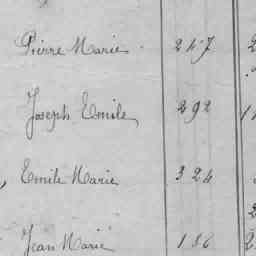 Pierre Marie 247 2
Joseph Emile 292 1
Emile Marie 324
2
Jean Marie 156 2